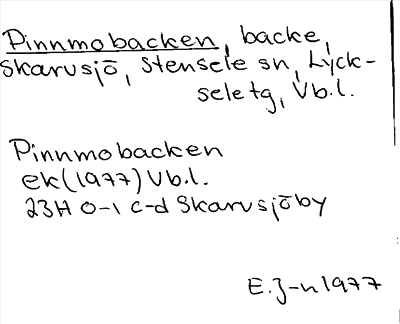 Pinnmobacken, backe,
Skarvsjö, Stensele sn, Lyck-
sele tg, Vb.l.
Pinnmobacken
ek (1977) Vb.l.
23H 0-1 c-d Skarvsjöby
E.J-n 1977